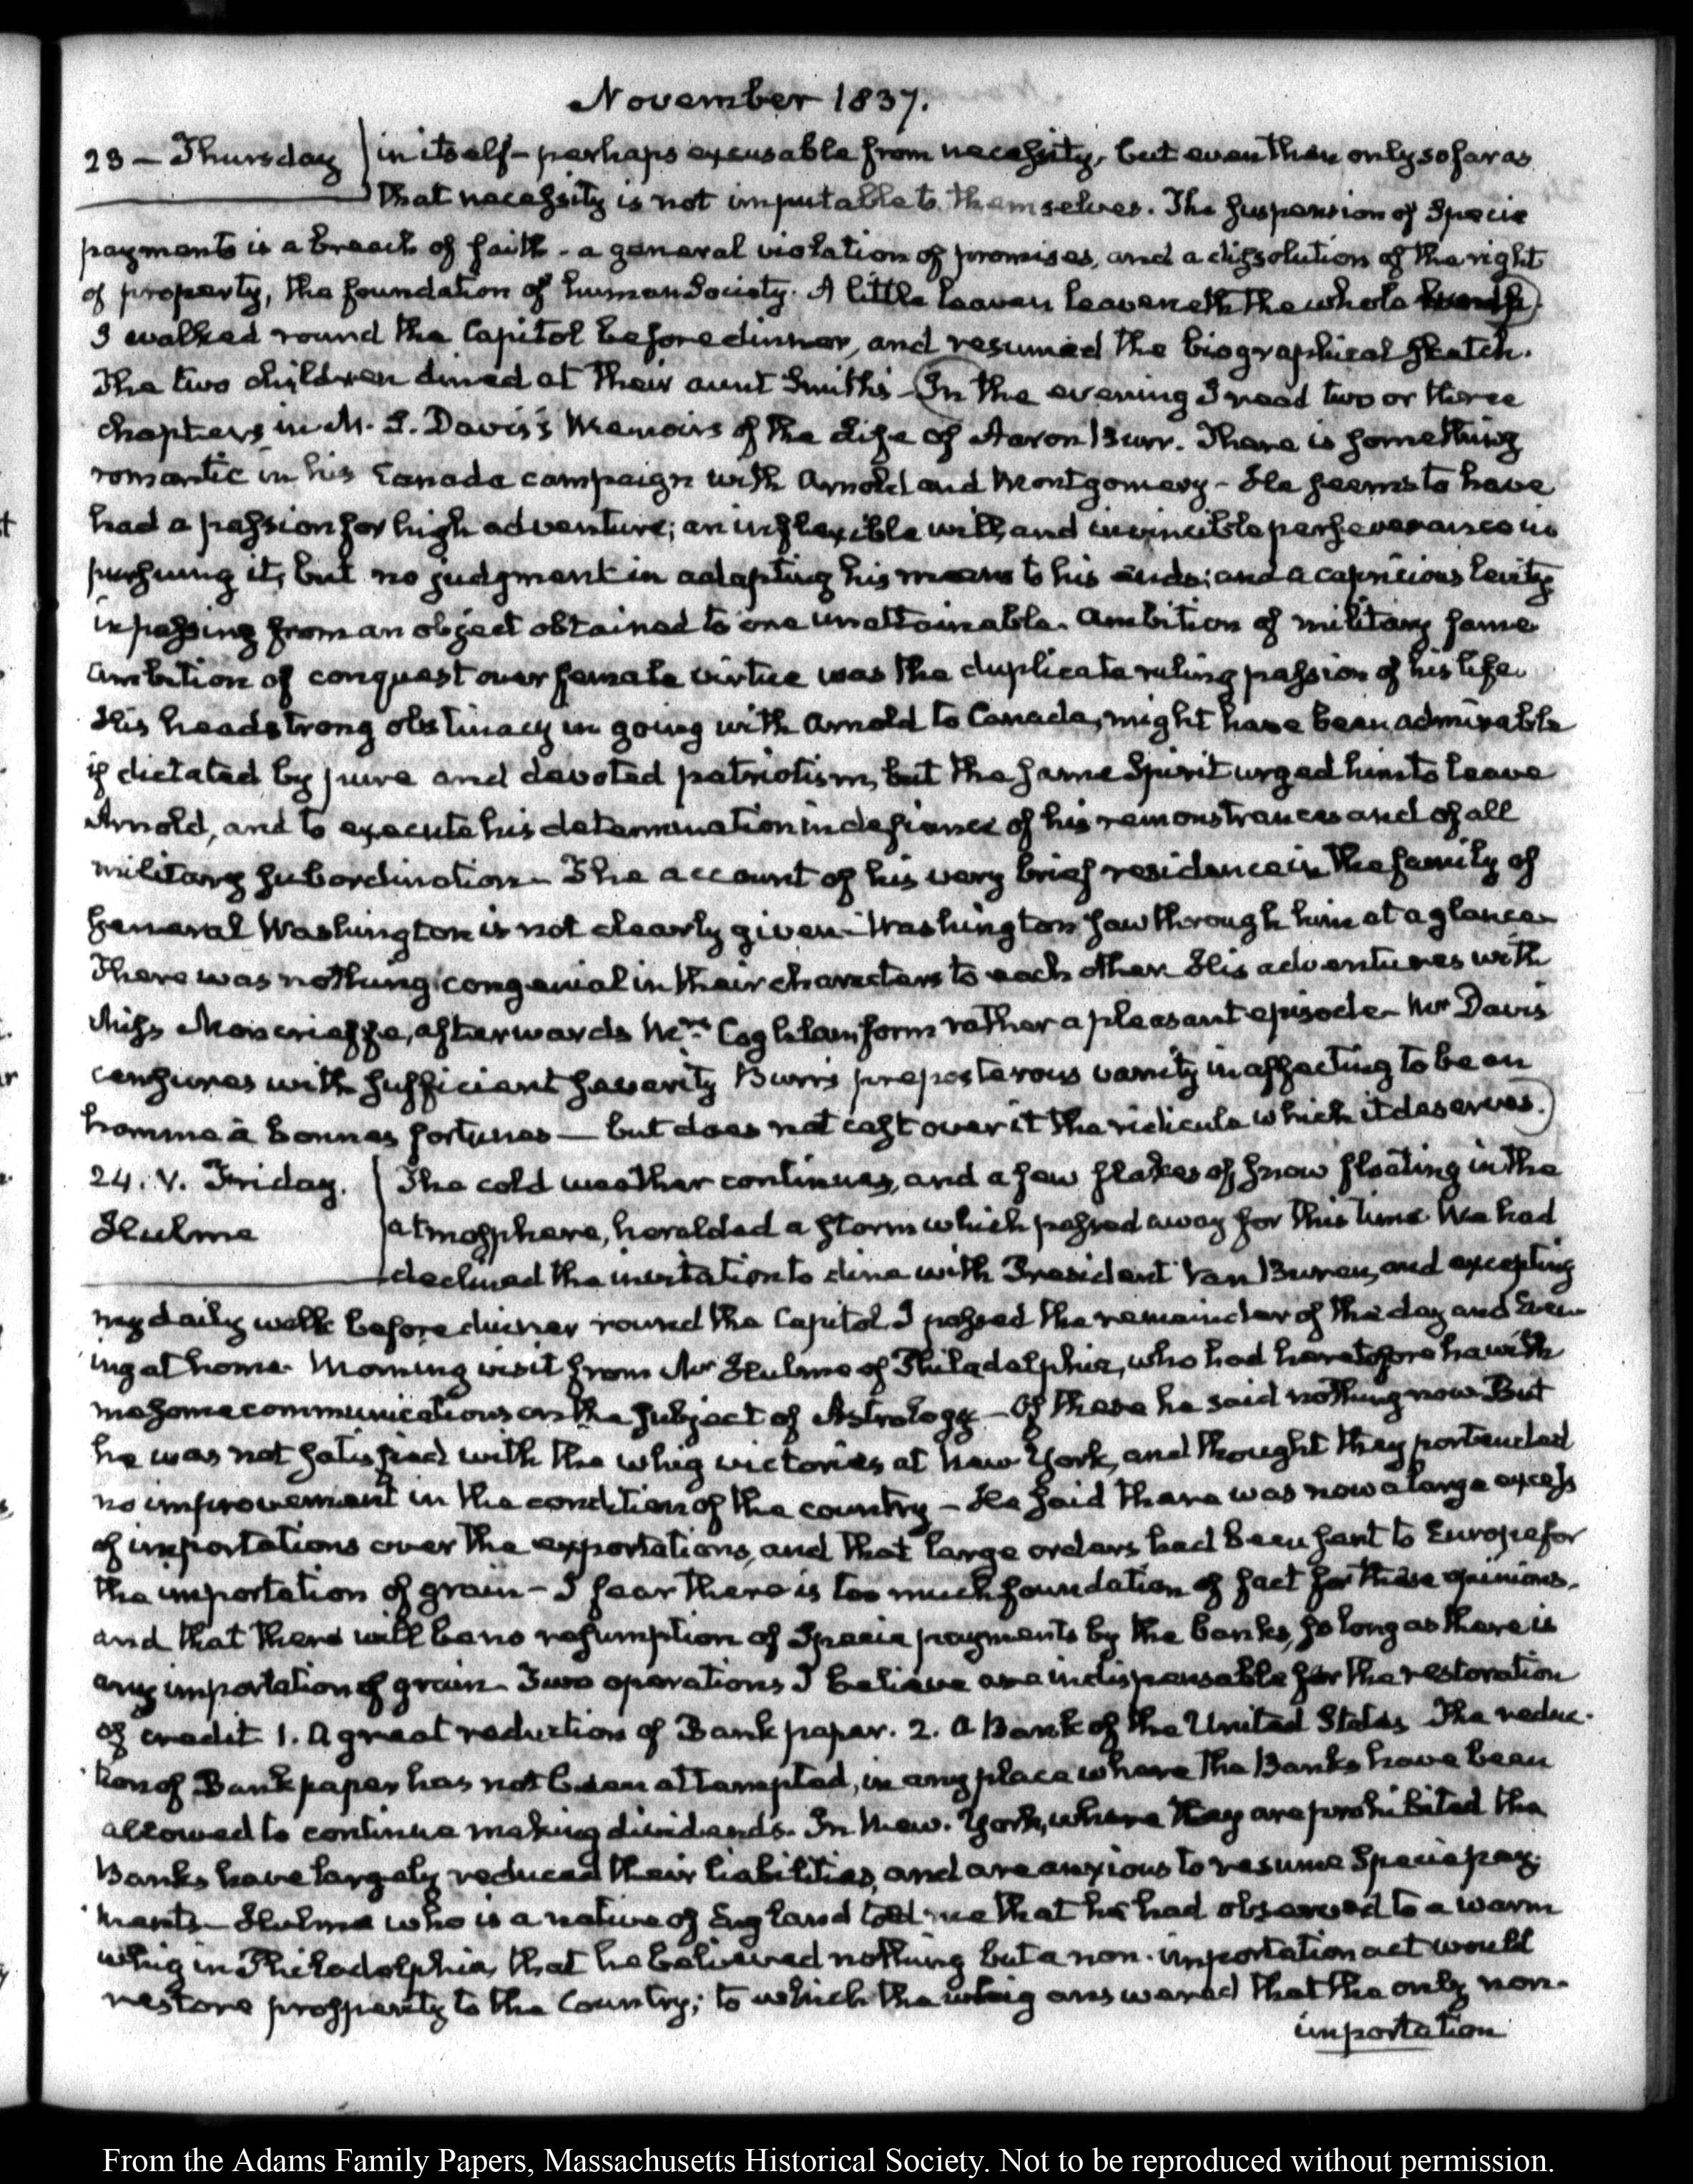 November 1837.
23 – Thursday
in itself – perhaps excusable from necessity, but even then only so far as
that necessity is not imputable to themselves. The suspension of Specie
payments is a breach of faith – a general violation of promises, and a dissolution of the right
of property, the foundation of human Society. A little leaven leaveneth the whole
I walked round the Capitol before dinner, and resumed the biographical sketch.
The two children dined at their aunt Smith's – In the evening I read two or three
chapters in M. L. Davis's Memoirs of the Life of Aaron Burr. There is something
romantic in his Canada campaign with Arnold and Montgomery – He seems to have
had a passion for high adventure; an inflexible will, and invincible perseverance in
pursuing it, but no judgment in adapting his means to his ends; and a capricious levity
in passing from an object obtained to one unattainable. Ambition of military fame
ambition of conquest over female virtue was the duplicate ruling passion of his life.
His headstrong obstinacy in going with Arnold to Canada, might have been admirable
if dictated by pure and devoted patriotism, but the same Spirit urged him to leave
Arnold, and to execute his determination in defiance of his remonstrances and of all
military subordination – The account of his very brief residence in the family of
General Washington is not clearly given – Washington saw through him at a glance –
There was nothing congenial in their characters to each other. His adventures with
Miss Moncrieffe, afterwards Mrs. Coghlan form rather a pleasant episode – Mr Davis
censures with sufficient severity Burr's preposterous vanity in affecting to be an
homme à bonnes fortunes — but does not cast over it the ridicule which it deserves.
24. V. Friday.
Hulme
The cold weather continues, and a few flakes of snow floating in the
atmosphere, heralded a storm which passed away for this time. We had
declined the invitation to dine with President Van Buren, and excepting
my daily walk before dinner round the Capitol I passed the remainder of the day and Even-
ing at home. Morning visit from Mr Hulme of Philadelphia, who had heretofore had with
me some communications on the subject of Astrology – Of these he said nothing now. But
he was not satisfied with the whig victories at New York, and thought they portended
no improvement in the condition of the country – He said there was now a large excess
of importations over the exportations, and that large orders had been sent to Europe for
the importation of grain – I fear there is too much foundation of fact for these opinions.
and that there will be no resumption of Specie payments by the banks, so long as there is
any importation of grain. Two operations I believe are indispensable for the restoration
of credit 1. A great reduction of Bank paper. 2. A Bank of the United States. The reduc-
tion of Bank paper has not been attempted, in any place where the Banks have been
allowed to continue making dividends. In New-York, where they are prohibited the
Banks have largely reduced their liabilities, and are anxious to resume Specie pay-
ments – Hulme who is a native of England told me that he had observed to a warm
whig in Philadelphia, that he believed nothing but a non-importation act would
restore prosperity to the Country; to which the whig answered that the only non-
importation
From the Adams Family Papers, Massachusetts Historical Society. Not to be reproduced without permission.